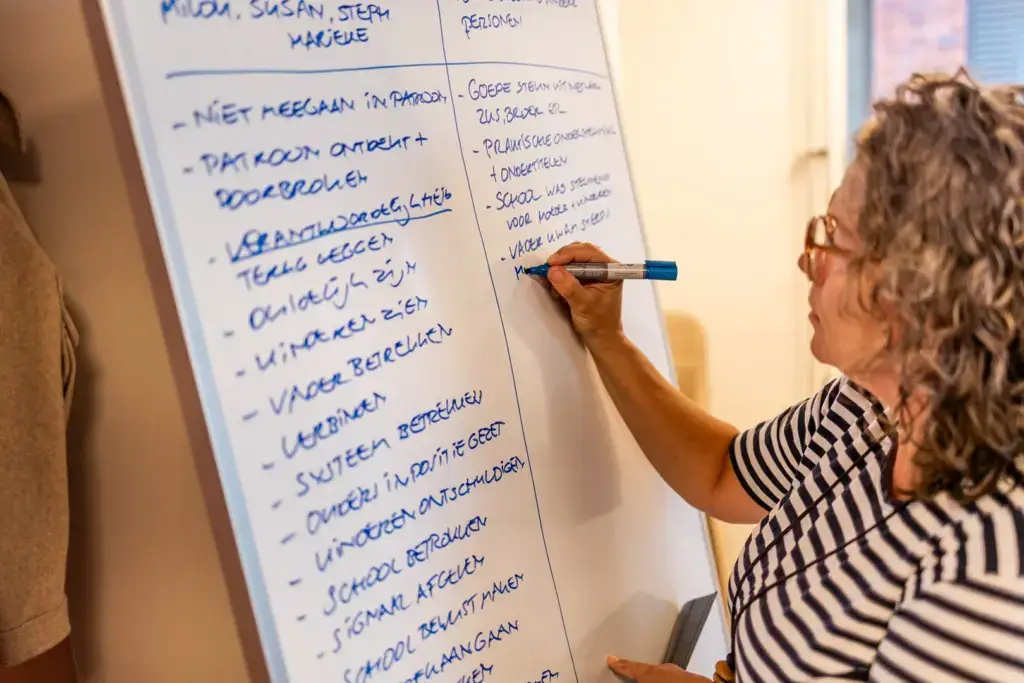 MILOU, SUSAN, STEPH
MARIEKE
PERSONEN
- NIET MEEGAAN IN PATROON
- PATROON ONTDEKT +
DOORBROKEN
- VERANTWOORDELIJKHEID
TERUG LEGGEN
- DUIDELIJK ZIJN
- KINDEREN ZIEN
- VADER BETREKKEN
- VERBINDEN
- SYSTEEM BETREKKEN
- OUDERS IN POSITIE GEZET
- KINDEREN ONTSCHULDIGEN
- SCHOOL BETROKKEN
- SIGNAAL AFGEVEN
- SCHOOL BEWUST MAKEN
AANGAAN
- GOEDE STEUN UIT NETWERK
ZUS, BROER
- PRAKTISCHE ONDERSTEUNING
+ ONDERTITELEN
- SCHOOL WAS STEUNEND
VOOR MOEDER + KINDEREN
- VADER KWAM STEEDS